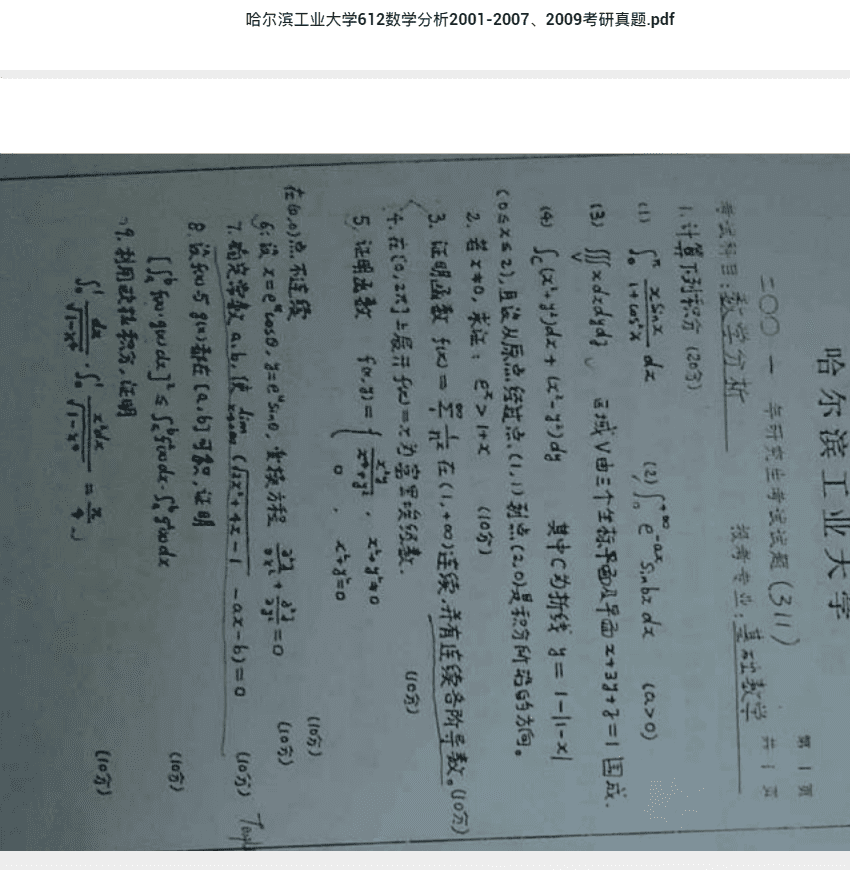 哈尔滨工业大学612数学分析2001-2007、2009考研真题.pdf
哈尔滨工业大学
第 1 页
二〇〇一 年研究生考试试题 (311) 共 1 页
考试科目:数学分析 报考专业:基础数学
1. 计算下列积分 (20分)
(1) ∫₀^π xsinx/(1+cos²x) dx (2) ∫₀^{+∞} e^{-ax} sinbx dx (a>0)
(3) ∭_V xdxdydz 区域V由三个坐标平面及平面 x+3y+z=1 围成.
(4) ∫_C (x²+y²)dx + (x²-y²)dy 其中C为折线 y = 1-|1-x|
(0≤x≤2), 且设从原点经过点(1,1)到点(2,0)是积分所沿的方向。
2. 若 x≠0, 求证: e^x > 1+x (10分)
3. 证明函数 f(x) = Σ₁^∞ 1/n^x 在 (1,+∞) 连续, 并有连续各阶导数。(10分)
4. 在[0,2π]上展开 f(x)=x 为富里埃级数. (10分)
5. 证明函数 f(x,y) = { x²y/(x⁴+y²), x²+y²≠0
0 , x²+y²=0
在(0,0)点不连续 (10分)
6. 设 x=e^u cosθ, y=e^u sinθ, 变换方程 ∂²z/∂x² + ∂²z/∂y² = 0 (10分)
7. 确定常数 a,b, 使 lim_{x→+∞} (√(2x²+4x-1) -ax-b)=0 (10分)
8. 设f(x)与g(x)都在[a,b]可积, 证明
[∫_a^b f(x)·g(x)dx]² ≤ ∫_a^b f²(x)dx·∫_a^b g²(x)dx (10分)
9. 利用欧拉积分, 证明
∫₀¹ dx/√(1-x⁴) · ∫₀¹ x²dx/√(1-x⁴) = π/4 (10分)